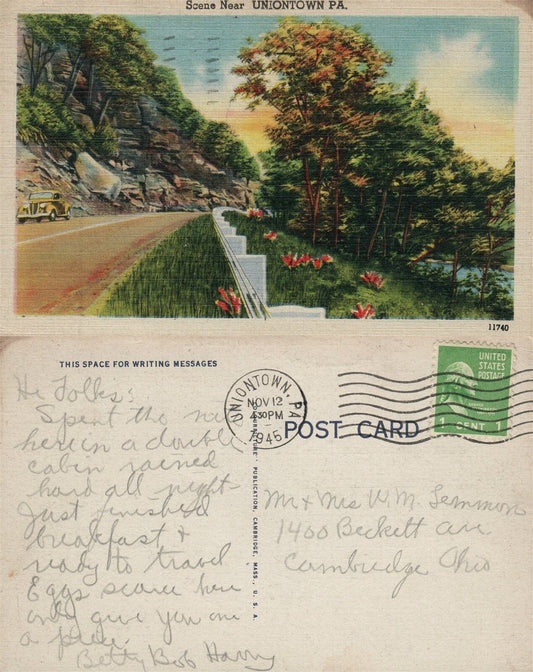 Scene Near UNIONTOWN PA.
11740
THIS SPACE FOR WRITING MESSAGES
UNIONTOWN, PA
NOV 12
4 30 PM
1945
POST CARD
UNITED
STATES
POSTAGE
1 CENT 1
PUBLICATION, CAMBRIDGE, MASS., U. S. A.
Hi Folks:
Spent the
here in a double
cabin rained
hard all night
Just finished
breakfast +
ready to travel
Eggs scarce here
only give you one
a piece.
Betty Bob Harry
Mr + Mrs W. M. Lemmon
1400 Beckett ave
Cambridge Ohio